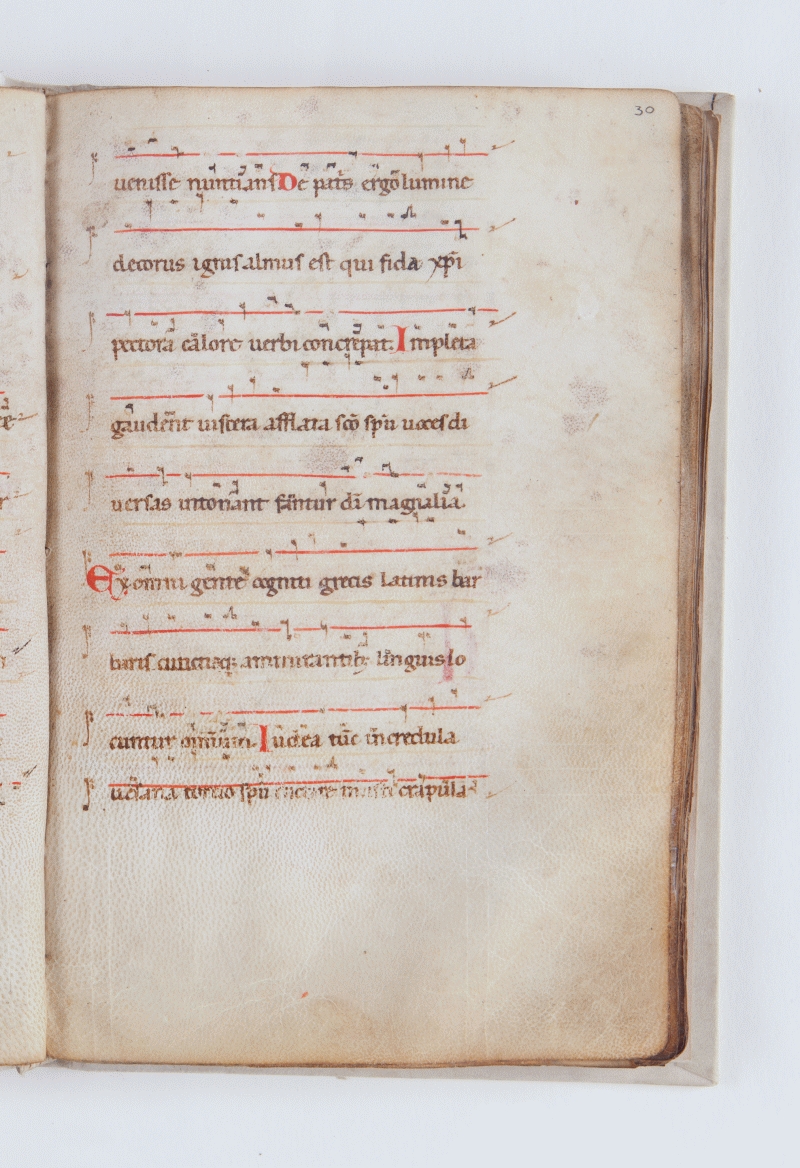 30
uenisse nuntians De pat̄s ergo lumine
decorus ignis almus est qui fida xp̄i
pectora calore uerbi concrepat. Impleta
gaudent uiscera afflata sc̄o sp̄u uoces di
uersas intonant fantur dī magnalia.
Ex omni gente cogniti grecis latinis bar
baris cunctisq; ammirantib; linguis lo
cuntur omnium. Iudea tūc incredula
uesana toruo sp̄u crapula